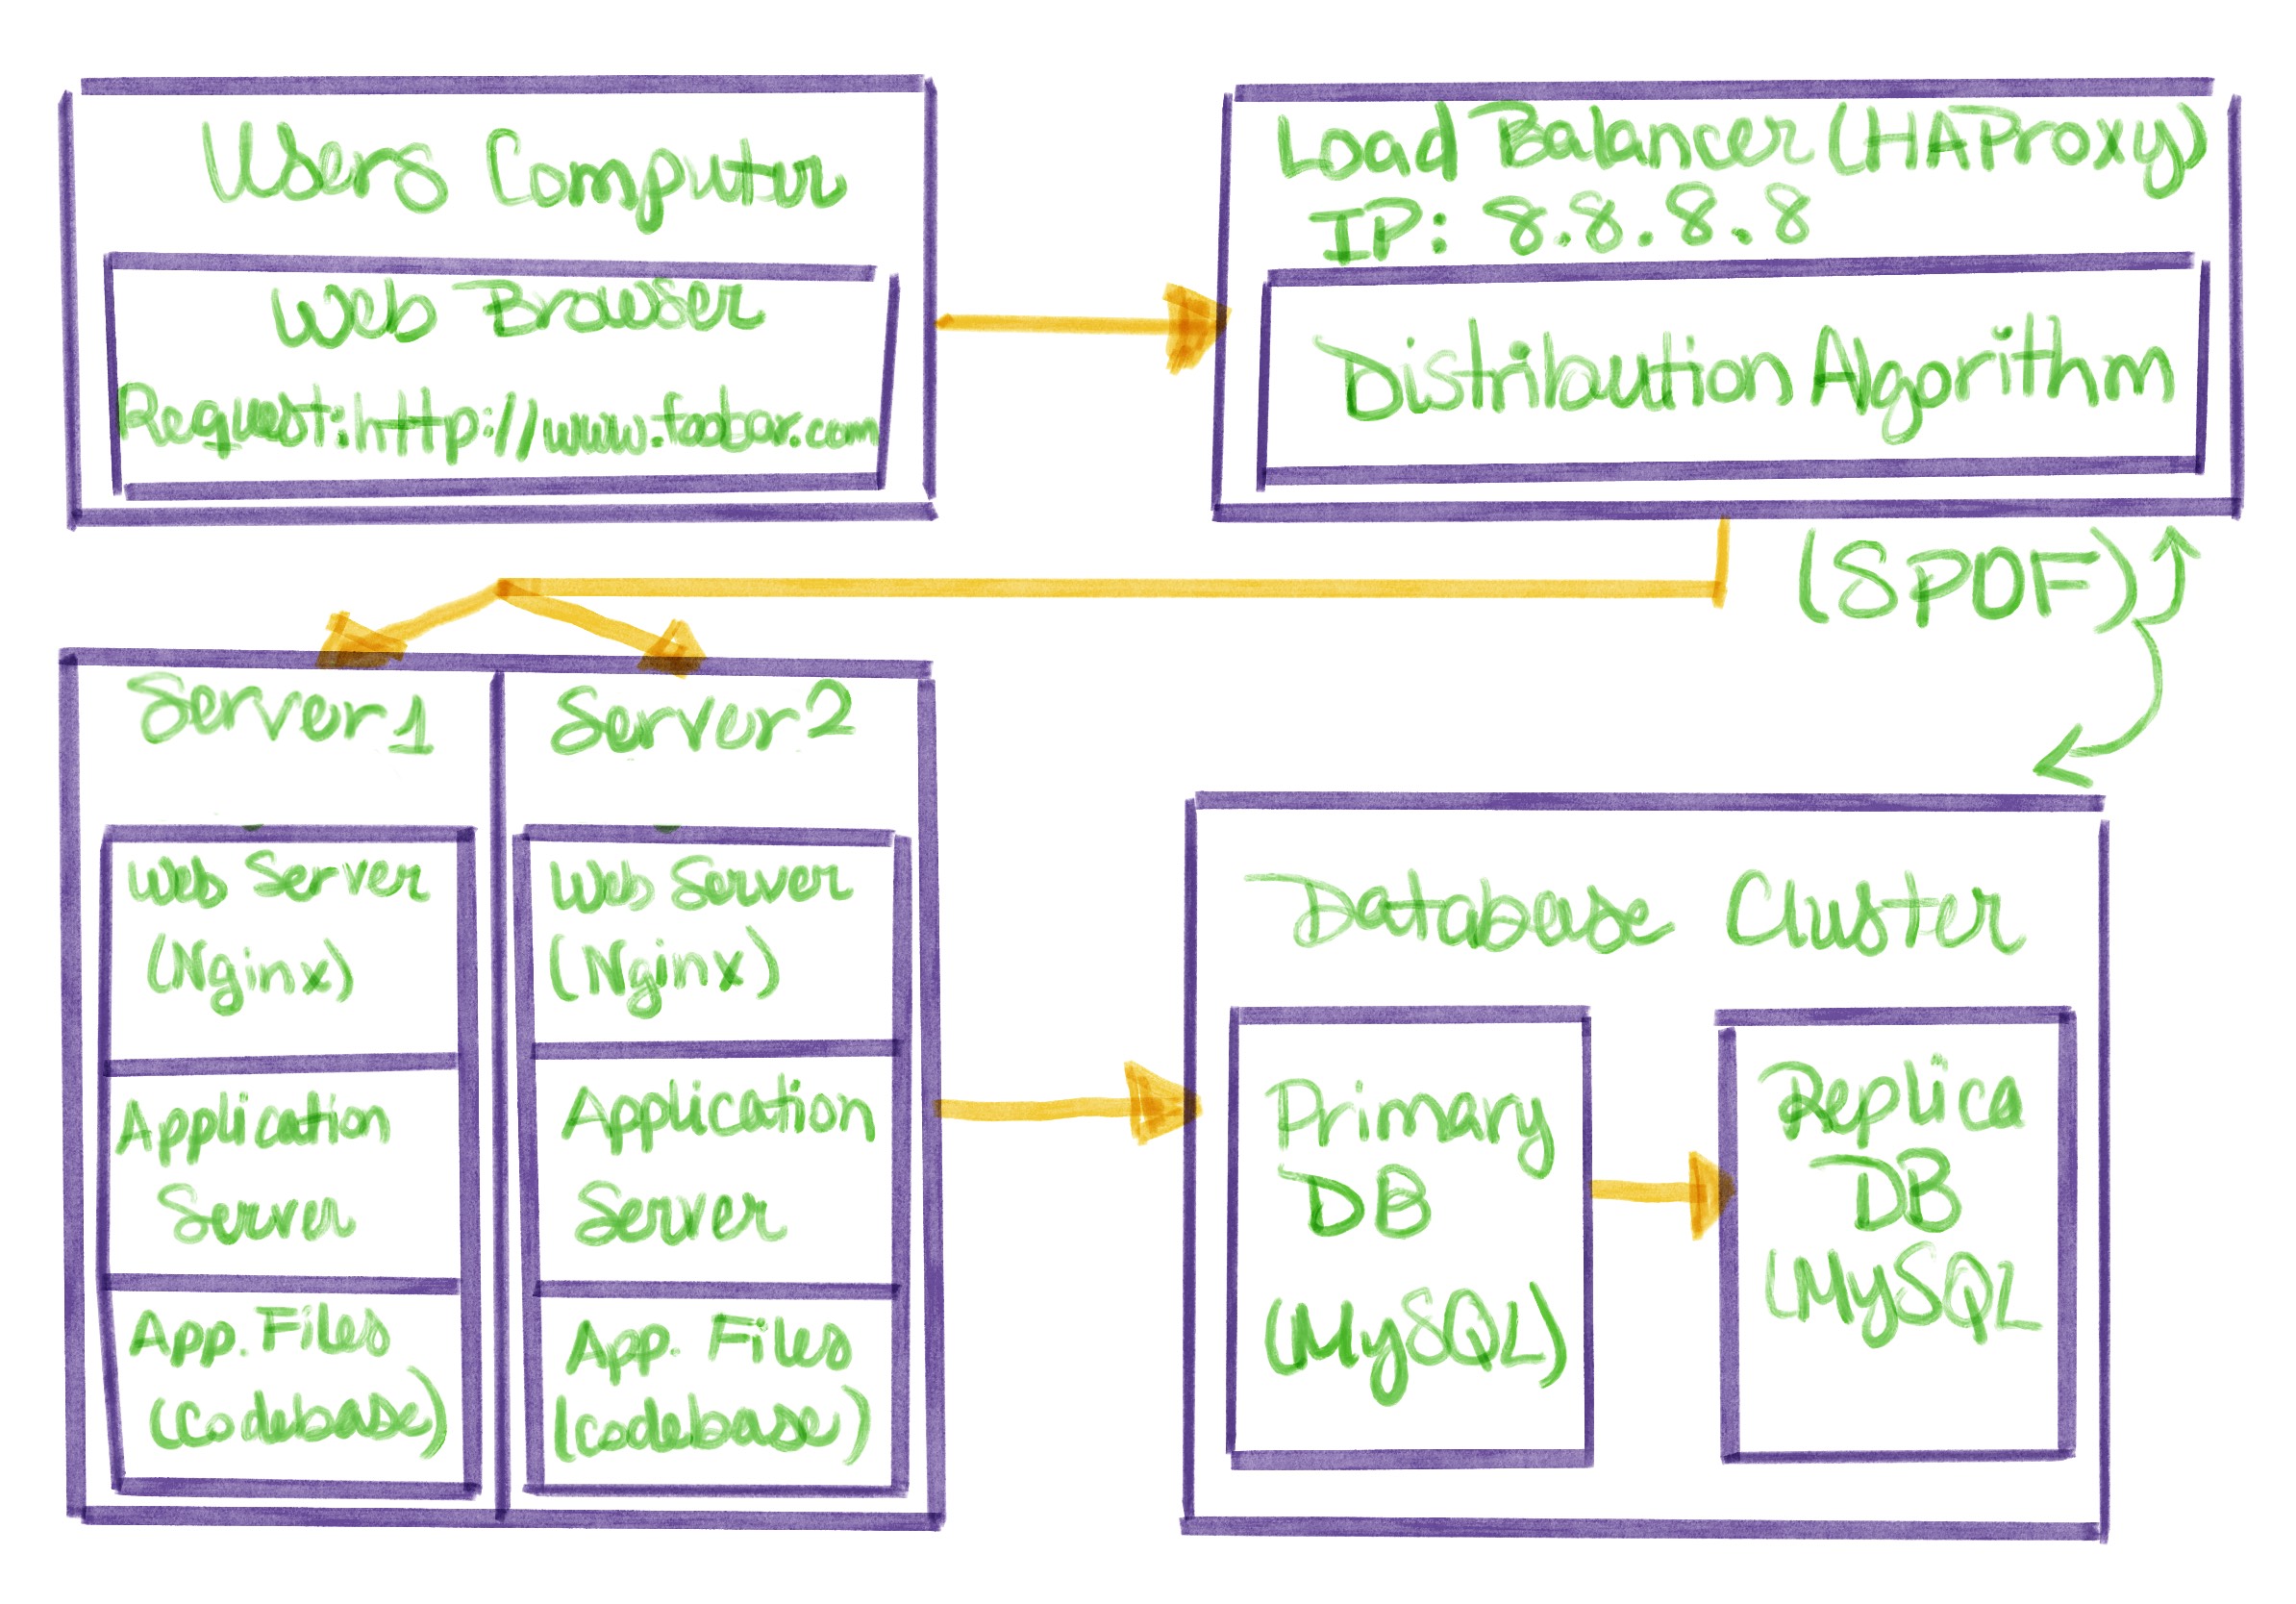 Users Computer
Web Browser
Request: http://www.foobar.com
Load Balancer (HAProxy)
IP: 8.8.8.8
Distribution Algorithm
(SPOF)
Server 1
Web Server
(Nginx)
Application
Server
App. Files
(Codebase)
Server 2
Web Server
(Nginx)
Application
Server
App. Files
(codebase)
Database Cluster
Primary
DB
(MySQL)
Replica
DB
(MySQL